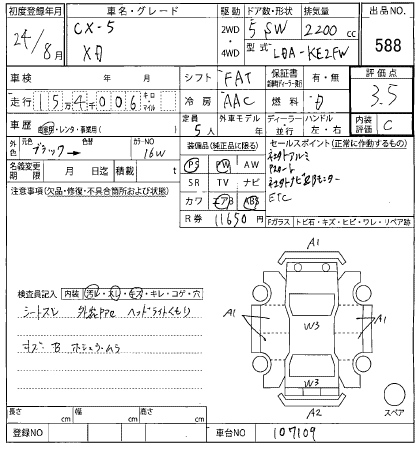 初度登録年月 車名・グレード 駆動 ドア数・形状 排気量 出品NO.
24/8月 CX-5 XD 2WD・4WD 5 SW 2200 cc 588
型式 LDA-KE2FW
車検 年 月 シフト FAT 保証書 有・無 評価点
走行 154,006 キロ マイル 冷房 AAC 燃料 3.5
車歴 自家用・レンタ・事業用( ) 定員 5人 外車モデル 年 ディーラー・並行 ハンドル 左・右 内装評価 C
外色 元色 ブラック 色替 カラーNO 16W
装備品(純正品に限る) セールスポイント(正常に作動するもの)
PS PW AW
名義変更期限 月 日迄 積載 t
SR TV ナビ
注意事項(欠品・修復・不具合箇所および状態)
カワ エアB ABS ETC
R券 11650円
Fガラス トビ石・キズ・ヒビ・ワレ・リペア跡
A1
検査員記入 内装 汚レ・スレ・キズ・キレ・コゲ・穴
シートスレ ヘッドライトくもり
A1 W3 A1
W3
A2 スペア
長さ cm 幅 cm 高さ cm
登録NO 車台NO 107109